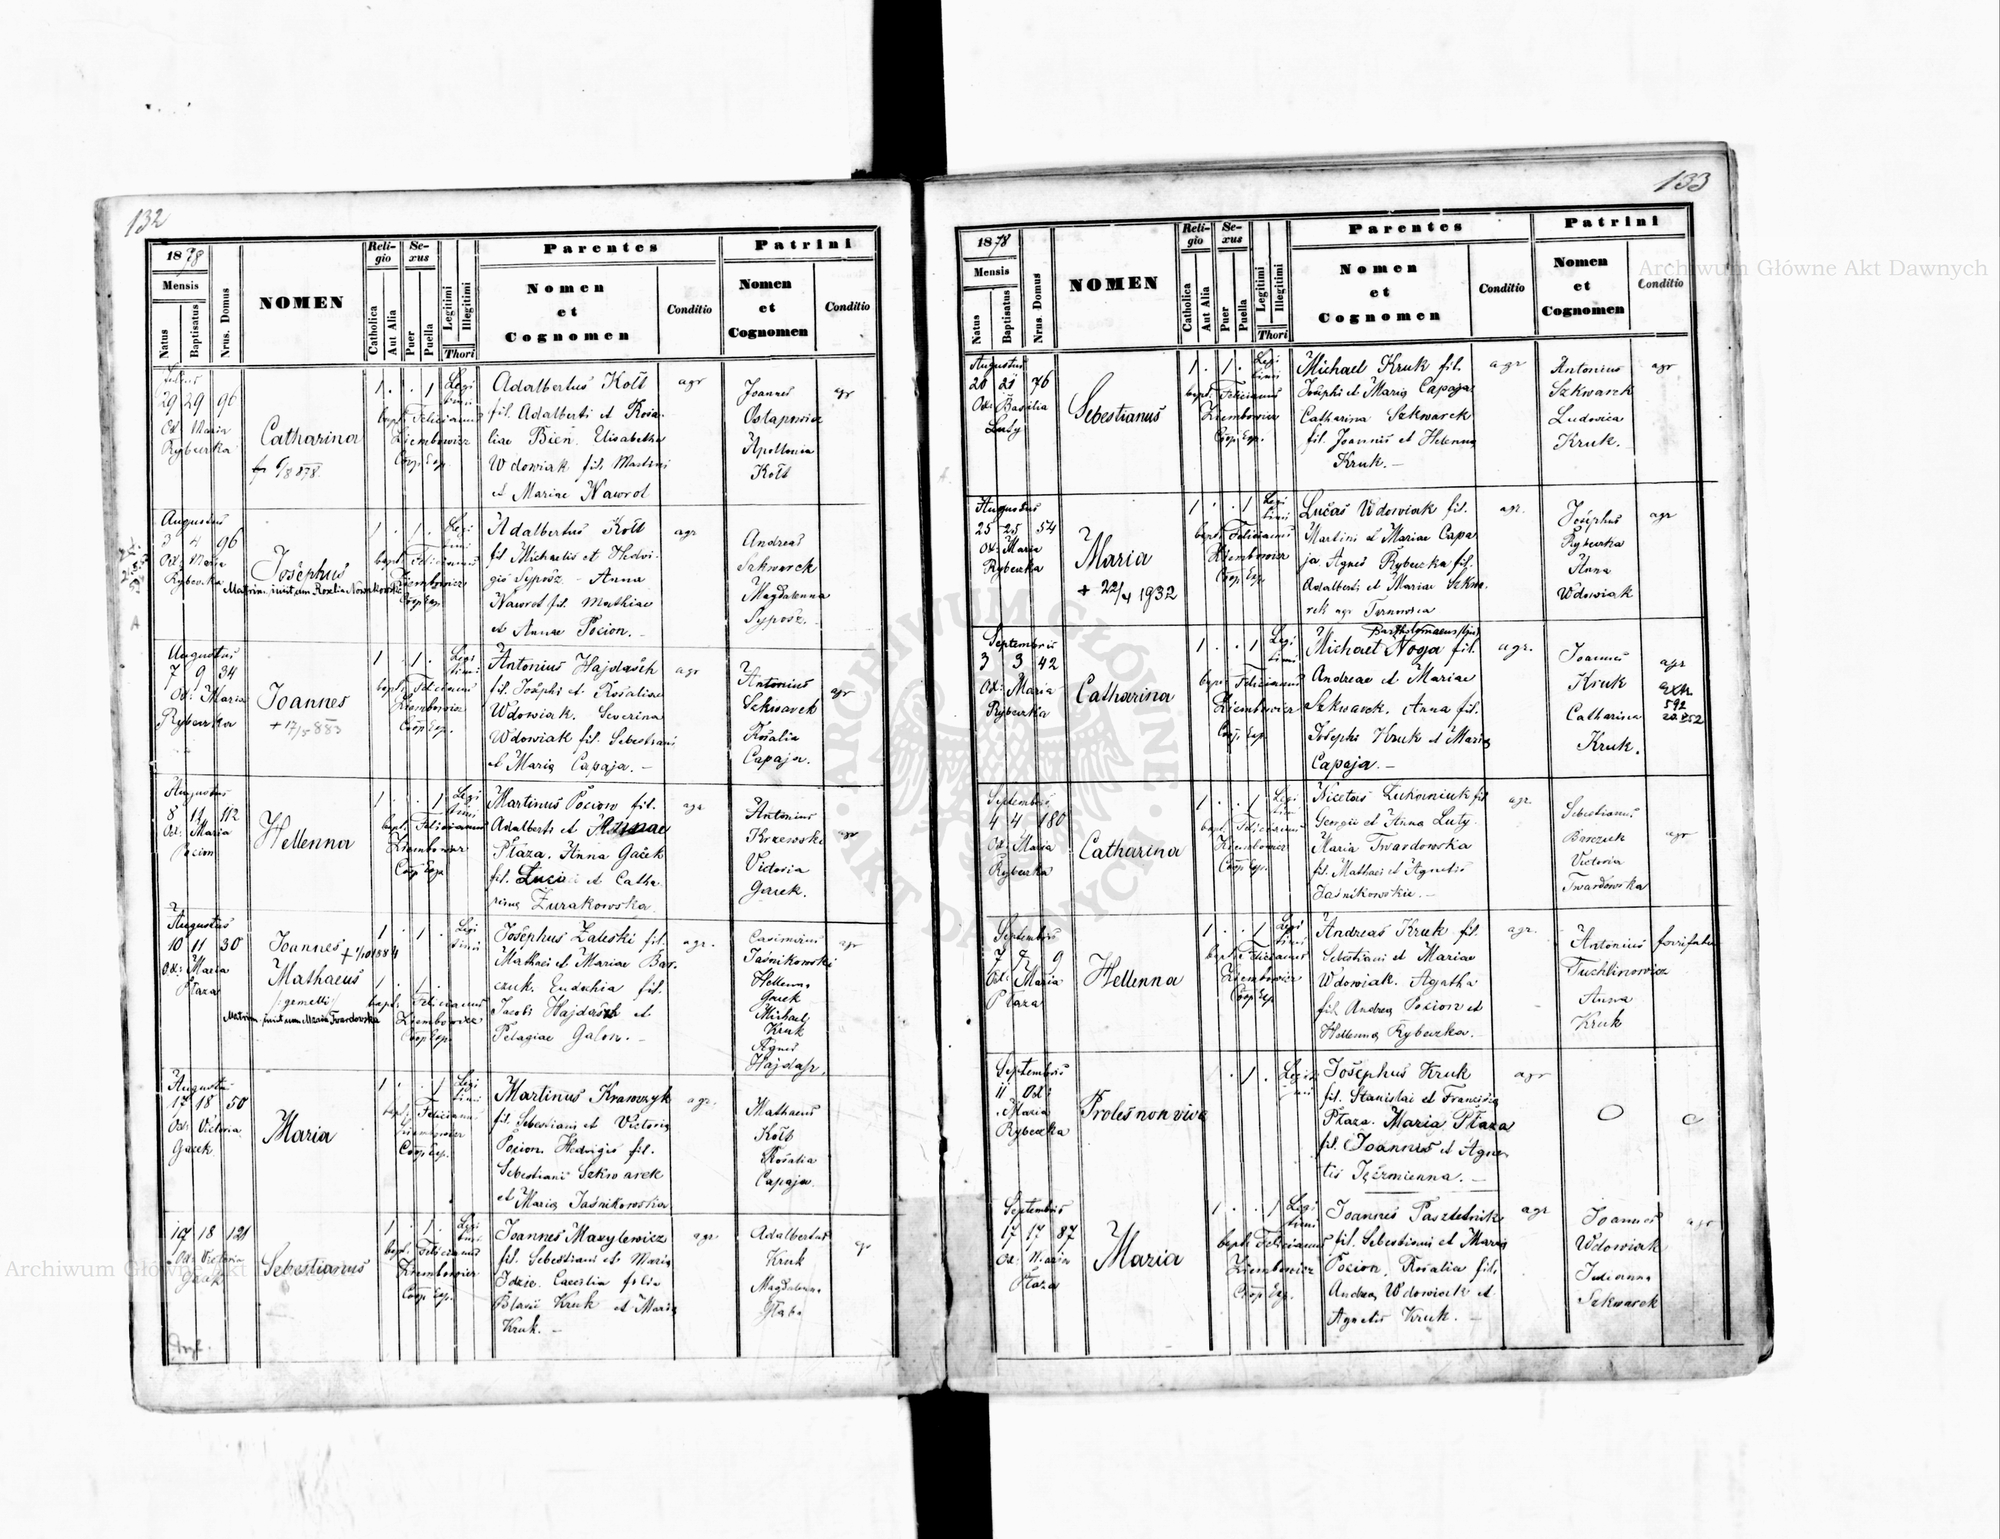 132
1878
Mensis
Natus
Baptisatus
Nrus. Domus
NOMEN
Reli-
gio
Catholica
Aut Alia
Se-
xus
Puer
Puella
Legitimi
Illegitimi
Thori
Parentes
Nomen
et
Cognomen
Conditio
Patrini
Nomen
et
Cognomen
Conditio
29 29 96
Ox Maria
Rybeczka
Catharina
1 . . 1
Legi
timi
bapt. Felicianus
Ziembowicz
Coop. Exp.
Adalbertus Kott
fil. Adalberti et Rosa-
liae Bień. Elisabetha
Wdowiak fil. Martini
et Mariae Nawrot
agr
Joannes
Ostapowicz
Apollonia
Kott
agr
Augustus
3 4 96
Ox: Maria
Rybeczka
Josephus
1 . 1 .
Legi
timi
bapt. Felicianus
Ziembowicz
Coop. Exp.
Adalbertus Kott
fil Michaelis et Hedvi-
gis Syposz - Anna
Nawrot fil. Mathiae
et Annae Pocion. -
agr
Andreas
Szkwarek
Magdalenna
Syposz. -
Augustus
7 9 34
Ox: Maria
Rybeczka
Joannes
+ 17/5 883
1 . 1 .
Legi
timi
bapt. Felicianus
Ziembowicz
Coop Exp.
Antonius Hajdasch
fil. Josephi et Rosaliae
Wdowiak. Severina
Wdowiak fil. Sebestiani
et Maria Capaja. -
agr
Antonius
Szkwarek
Rosalia
Capaja.
agr
Augustus
8 11 112
Ox: Maria
Pocion
Hellenna
1 . . 1
Legi
timi
bapt. Felicianus
Ziembowicz
Coop Exp
Martinus Pocion fil.
Adalberti et
Płaza. Anna Gacek
fil. Luciae et Catha
rina Żurakowska
agr
Antonius
Krzewoski
Victoria
Gacek.
agr
Augustus
10 11 30
Ox: Maria
Płaza
Joannes
Mathaeus
/: gemelli
Matrim. Maria Twardowska
1 . 1 .
Legi
timi
1 . 1 .
bapt. Felicianus
Ziembowicz
Coop Exp.
Josephus Zaleski fil.
Mathaei et Mariae Bar-
czuk. Eudochia fil.
Jacobi Hajdasz et
Pelagiae Galon. -
agr.
Casimirus
Jaśnikowski
Hellenna
Gacek
Michael
Kruk
Agnes
Hajdasz.
agr
17 18 50
Ox: Victoria
Gacek
Maria
1 . . 1
Legi
timi
bapt. Felicianus
Ziembowicz
Coop Exp.
Martinus Kramczyk
fil. Sebestiani et Victoria
Pocion. Hedvigis fil.
Sebestiani Szkwarek
et Maria Jaśnikowska
agr.
Mathaeus
Kott
Rosalia
Capaja.
17 18 121
Ox: Victoria
Gacek
Sebestianus
1 . 1 .
Legi
timi
bapt. Felicianus
Ziembowicz
Coop Exp.
Joannes Maxylewicz
fil. Sebestiani et Maria
Idzic. Caecilia filia
Blasii Kruk et Maria
Kruk. -
agr.
Adalbertus
Kruk
Magdalenna
133
1878
Mensis
Natus
Baptisatus
Nrus. Domus
NOMEN
Reli-
gio
Catholica
Aut Alia
Se-
xus
Puer
Puella
Legitimi
Illegitimi
Thori
Parentes
Nomen
et
Cognomen
Conditio
Patrini
Nomen
et
Cognomen
Conditio
Augustus
20 21 76
Ox: Basilia
Luty
Sebestianus
1 . 1 .
Legi
timi
bapt. Felicianus
Ziembowicz
Coop Exp.
Michael Kruk fil.
Josephi et Maria Capaja
Catharina Szkwarek
fil. Joannis et Helenna
Kruk. -
agr
Antonius
Szkwarek
Ludovica
Kruk. -
agr
Augustus
25 25 54
Ox: Maria
Rybeczka
Maria
+ 22/4 1932
1 . . 1
Legi
timi
bapt. Felicianus
Ziembowicz
Coop. Exp.
Lucas Wdowiak fil.
Martini et Mariae Capa
ja Agnes Rybeczka fil.
Adalberti et Mariae Szkwa-
rek agr Tarnowica
agr.
Josephus
Rybeczka
Anna
Wdowiak
agr
Septembris
3 3 42
Ox: Maria
Rybeczka
Catharina
1 . . 1
Legi
timi
bapt. Felicianus
Ziembowicz
Coop. Exp.
Michael Noga fil.
Andreae et Mariae
Szkwarek. Anna fil.
Josephi Kruk et Maria
Capaja. -
agr.
Joannes
Kruk
Catharina
Kruk.
agr
Septembris
4 4 180
Ox: Maria
Rybeczka
Catharina
1 . . 1
Legi
timi
bapt. Felicianus
Ziembowicz
Coop. Exp.
Nicetas Lukaniuk fil
Georgii et Anna Luty.
Maria Twardowska
fil. Mathaei et Agnetis
Jaśnikowskie. -
agr
Sebestianus
Barczuk
Victoria
Twardowska
agr
Septembris
7 8 9
Ox: Maria
Płaza
Hellenna
1 . . 1
Legi
timi
bapt. Felicianus
Ziembowicz
Coop Exp
Andreas Kruk fil.
Sebestiani et Mariae
Wdowiak. Agatha
fil. Andrea Pocion et
Hellenna Rybeczka.
agr.
Antonius
Tuchlinowicz
Anna
Kruk
Septembris
11 Ox:
Maria
Rybeczka
Proles non viva
. 1 .
Josephus Kruk
fil. Stanislai et Francisca
Płaza. Maria Płaza
fil. Joannis et Agne-
tis Jęczmienna. -
agr
Septembris
17 17 87
Ox: Maria
Płaza
Maria
1 . . 1
Legi
timi
bapt. Felicianus
Ziembowicz
Coop Exp.
Joannes Pasztetnik
fil. Sebestiani et Maria
Pocion. Rosalia fil.
Andrea Wdowiak et
Agnetis Kruk. -
agr
Joannes
Wdowiak
Julianna
Szkwarek
agr
Archiwum Główne Akt Dawnych
ARCHIWUM GŁÓWNE · AKT DAWNYCH ·
Archiwum Główne Akt